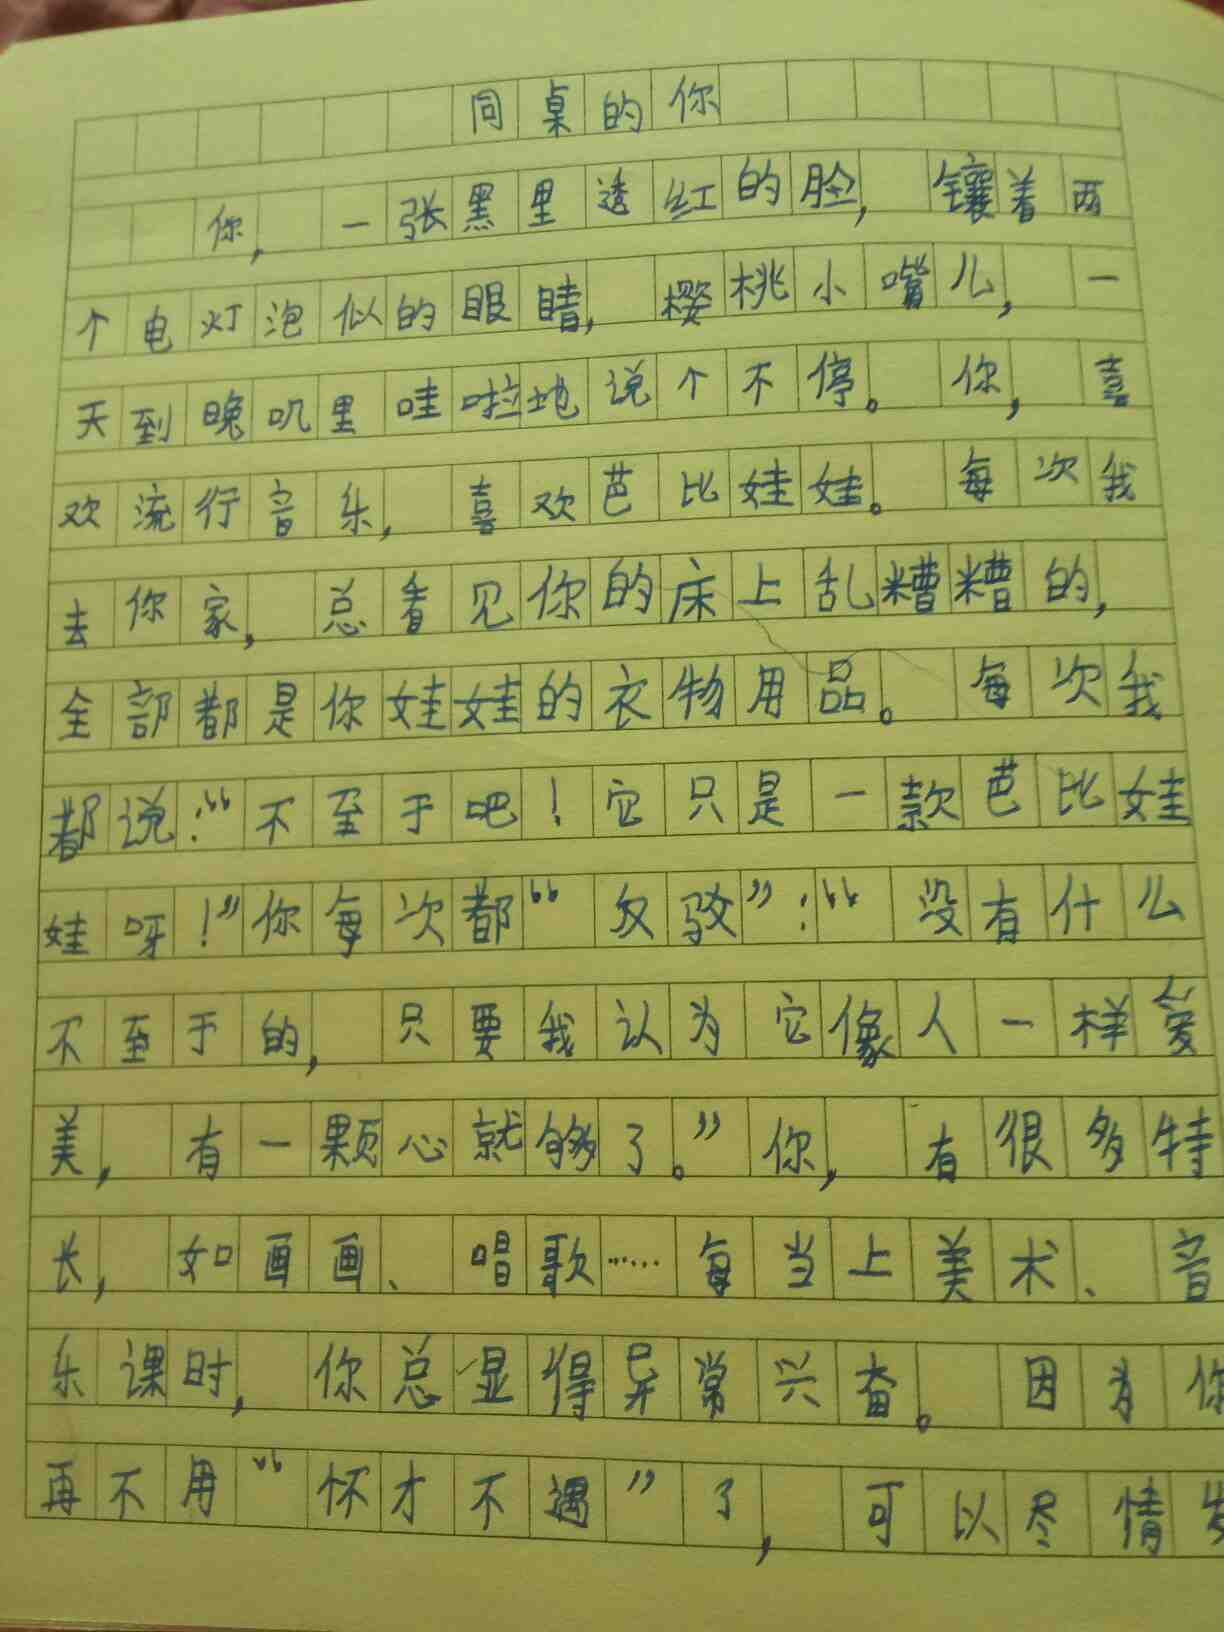 同桌的你
你,一张黑里透红的脸,镶着两
个电灯泡似的眼睛,樱桃小嘴儿,一
天到晚叽里哇啦地说个不停。你,喜
欢流行音乐,喜欢芭比娃娃。每次我
去你家,总看见你的床上乱糟糟的,
全部都是你娃娃的衣物用品。每次我
都说:“不至于吧!它只是一款芭比娃
娃呀!”你每次都“反驳”:“没有什么
不至于的,只要我认为它像人一样爱
美,有一颗心就够了。”你,有很多特
长,如画画、唱歌……每当上美术、音
乐课时,你总显得异常兴奋。因为你
再不用“怀才不遇”了,可以尽情发